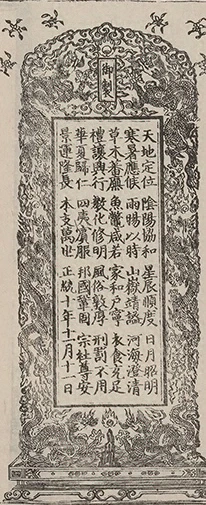 御製
天地定位　陰陽協和　星辰順度　日月昭明
寒暑應候　雨暘以時　山嶽靖謐　河海澄清
草木蕃廡　魚鱉咸若　家和户寧　衣食充足
禮讓興行　教化修明　風俗敦厚　刑罰不用
華夏歸仁　四夷賓服　邦國鞏固　宗社尊安
景運隆長　本支萬世　正統十年十一月十一日